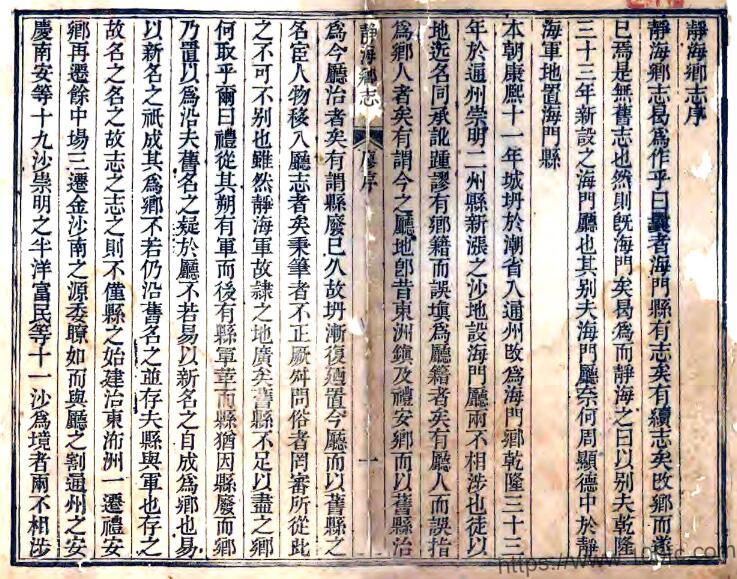 靜海鄉志序
靜海鄉志曷爲作乎曰曩者海門縣有志矣有續志矣改鄉而遂
已焉是無舊志也然則旣海門矣曷爲而靜海之曰以別夫乾隆
三十三年新設之海門廳也其別夫海門廳奈何周顯德中於靜
海軍地置海門縣
本朝康熙十一年城坍於潮省入通州改爲海門鄉乾隆三十三
年於通州崇明二州縣新漲之沙地設海門廳兩不相涉也徒以
地迩名同承訛踵謬有鄉籍而誤塡爲廳籍者矣有廳人而誤指
爲鄉人者矣有謂今之廳地卽昔東洲鎭及禮安鄉而以舊縣治
靜海鄉志
序
一
爲今廳治者矣有謂縣廢已久故坍漸復廼置今廳而以舊縣之
名宦人物移入廳志者矣秉筆者不正厥舛問俗者罔審所從此
之不可不别也雖然靜海軍故隷之地廣矣舊縣不足以盡之鄉
何取乎爾曰禮從其朔有軍而後有縣軍華而縣猶因縣廢而鄉
乃置以爲沿夫舊名之疑於廳不若易以新名之自成爲鄉也易
以新名之祇成其爲鄉不若仍沿舊名之並存夫縣與軍也存之
故名之名之故志之志之則不僅縣之始建治東洲一遷禮安
鄉再遷餘中場三遷金沙南之源委瞭如而與廳之割通州之安
慶南安等十九沙崇明之半洋富民等十一沙爲境者兩不相涉
https://www.10jjc.com